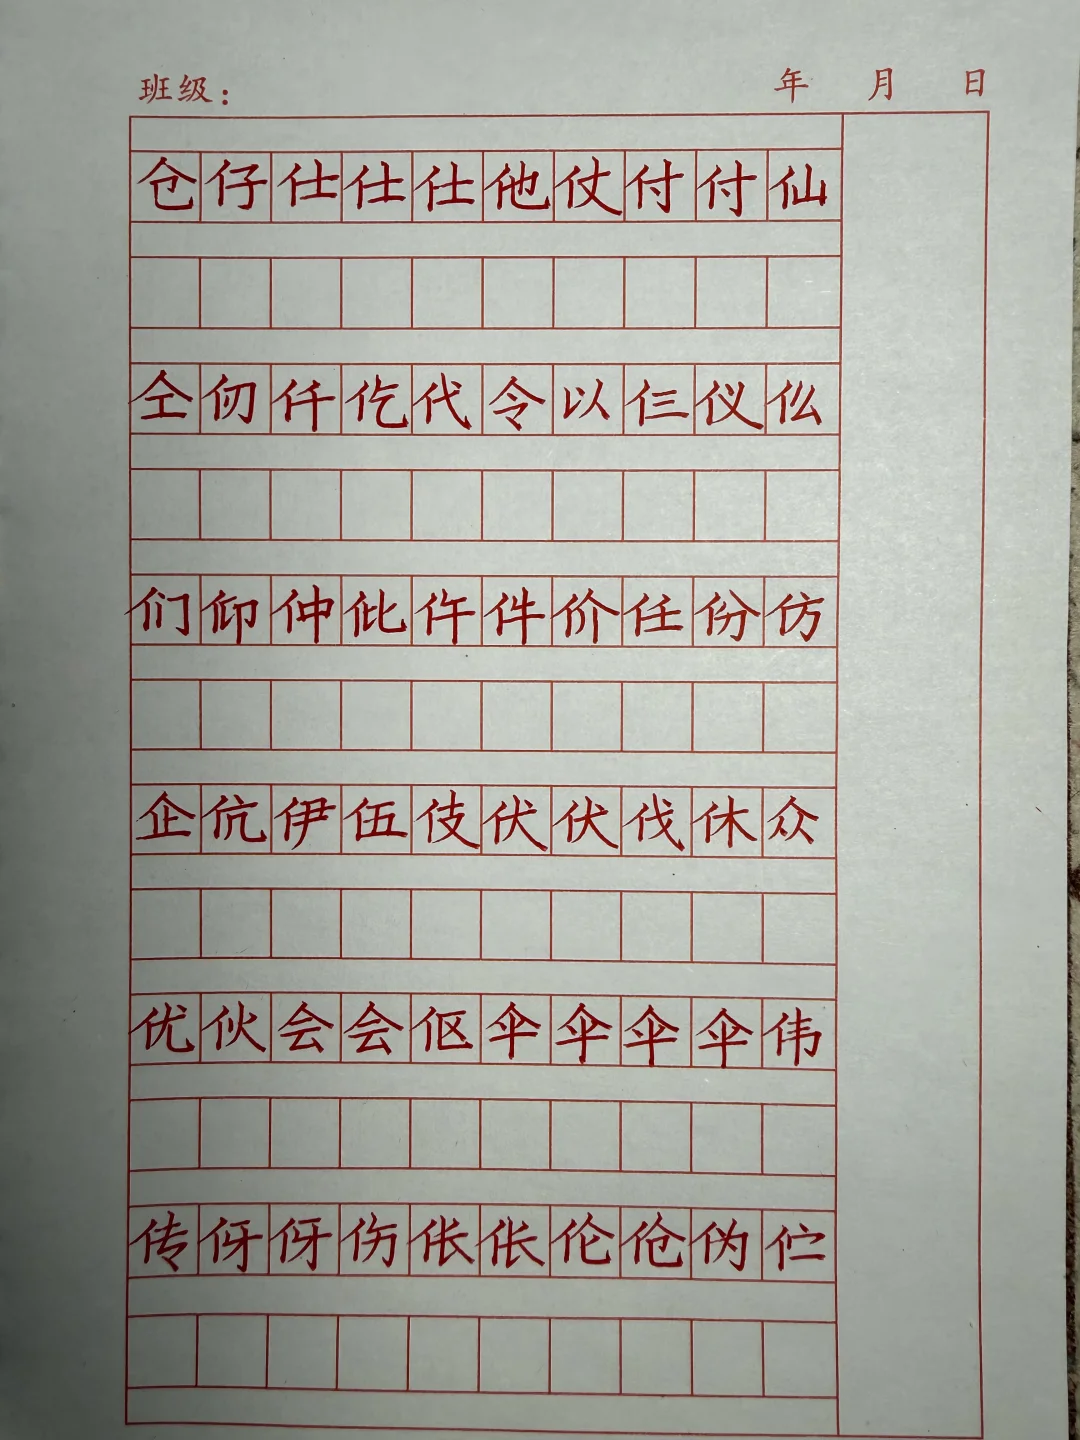 班级： 年 月 日
仓仔仕仕仕他仗付付仙
仝仞仟仡代令以仨仪仫
们仰仲仳仵件价任份仿
企伉伊伍伎伏伏伐休众
优伙会会伛伞伞伞伞伟
传伢伢伤伥伥伦伧伪伫